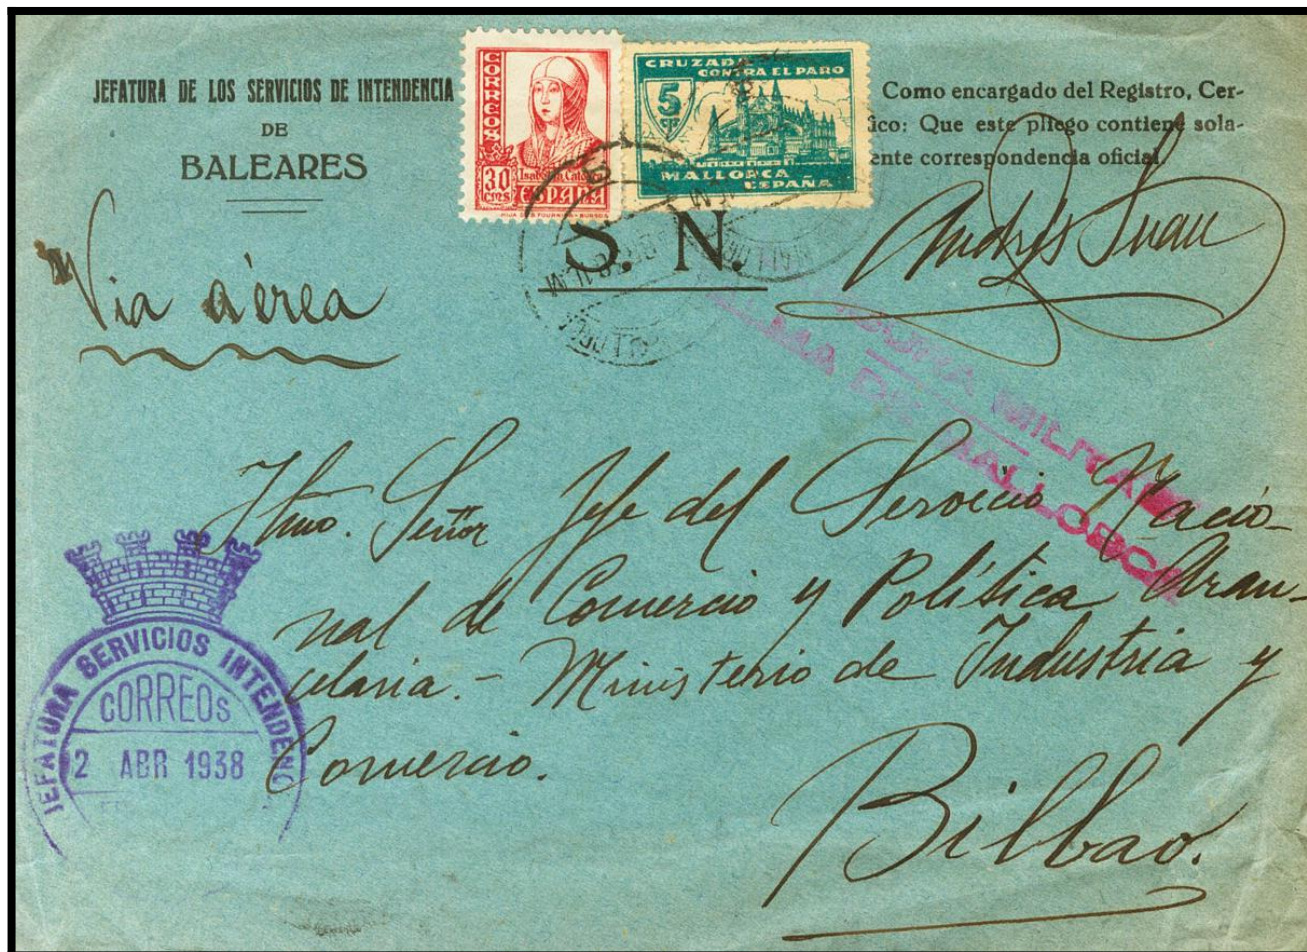 JEFATURA DE LOS SERVICIOS DE INTENDENCIA
DE
BALEARES
CORREOS
30
cms
Isabel la Católica
ESPAÑA
HIJA DE B. FOURNIER - BURGOS
CRUZADA
CONTRA EL PARO
5
cts
MALLORCA
ESPAÑA
Como encargado del Registro, Cer-
fico: Que este pliego contiene sola-
ente correspondencia oficial.
S. N.
Andrés
Via aérea
MILITAR
PALMA DE MALLORCA
Iltmo. Señor Jefe del Servicio Nacio-
nal de Comercio y Política Aran-
celaria.- Ministerio de Industria y
Comercio.
Bilbao.
JEFATURA SERVICIOS INTENDENC
CORREOS
2 ABR 1938